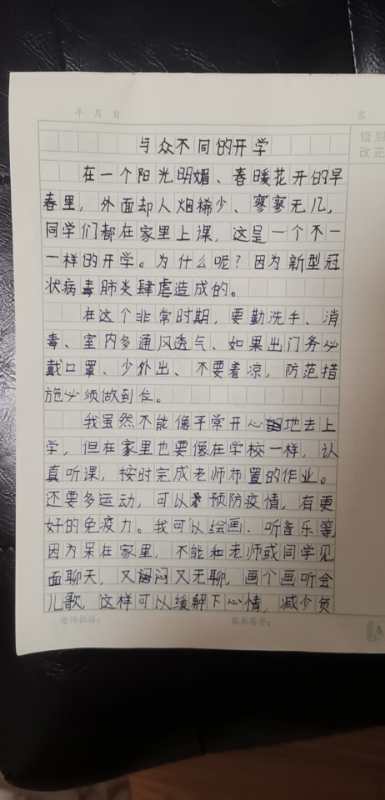 年 月 日
与众不同的开学
在一个阳光明媚、春暖花开的早
春里，外面却人烟稀少、寥寥无几，
同学们都在家里上课，这是一个不一
一样的开学。为什么呢？因为新型冠
状病毒肺炎肆虐造成的。
在这个非常时期，要勤洗手、消
毒、室内多通风透气、如果出门务必
戴口罩、少外出、不要着凉，防范措
施必须做到位。
我虽然不能像平常开心地去上
学，但在家里也要像在学校一样，认
真听课，按时完成老师布置的作业。
还要多运动，可以预防疫情，有更
好的免疫力。我可以绘画、听音乐等
因为呆在家里，不能和老师或同学见
面聊天，又闷又无聊，画个画听会
儿歌，这样可以缓解下心情，减少负